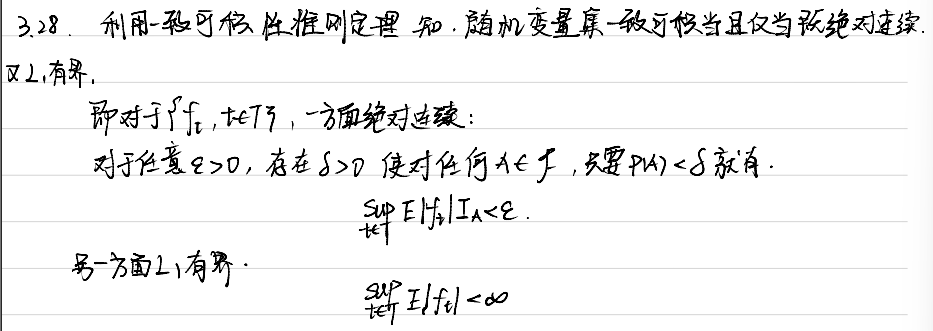 3.28. 利用一致可积性准则定理知,随机变量集一致可积当且仅当既绝对连续
又L₁有界.
即对于{f_t, t∈T}, 一方面绝对连续:
对于任意ε>0, 存在δ>0 使对任何A∈F, 只要P(A)<δ就有.
sup_{t∈T} E|f_t|I_A<ε.
另一方面L₁有界.
sup_{t∈T} E|f_t|<∞